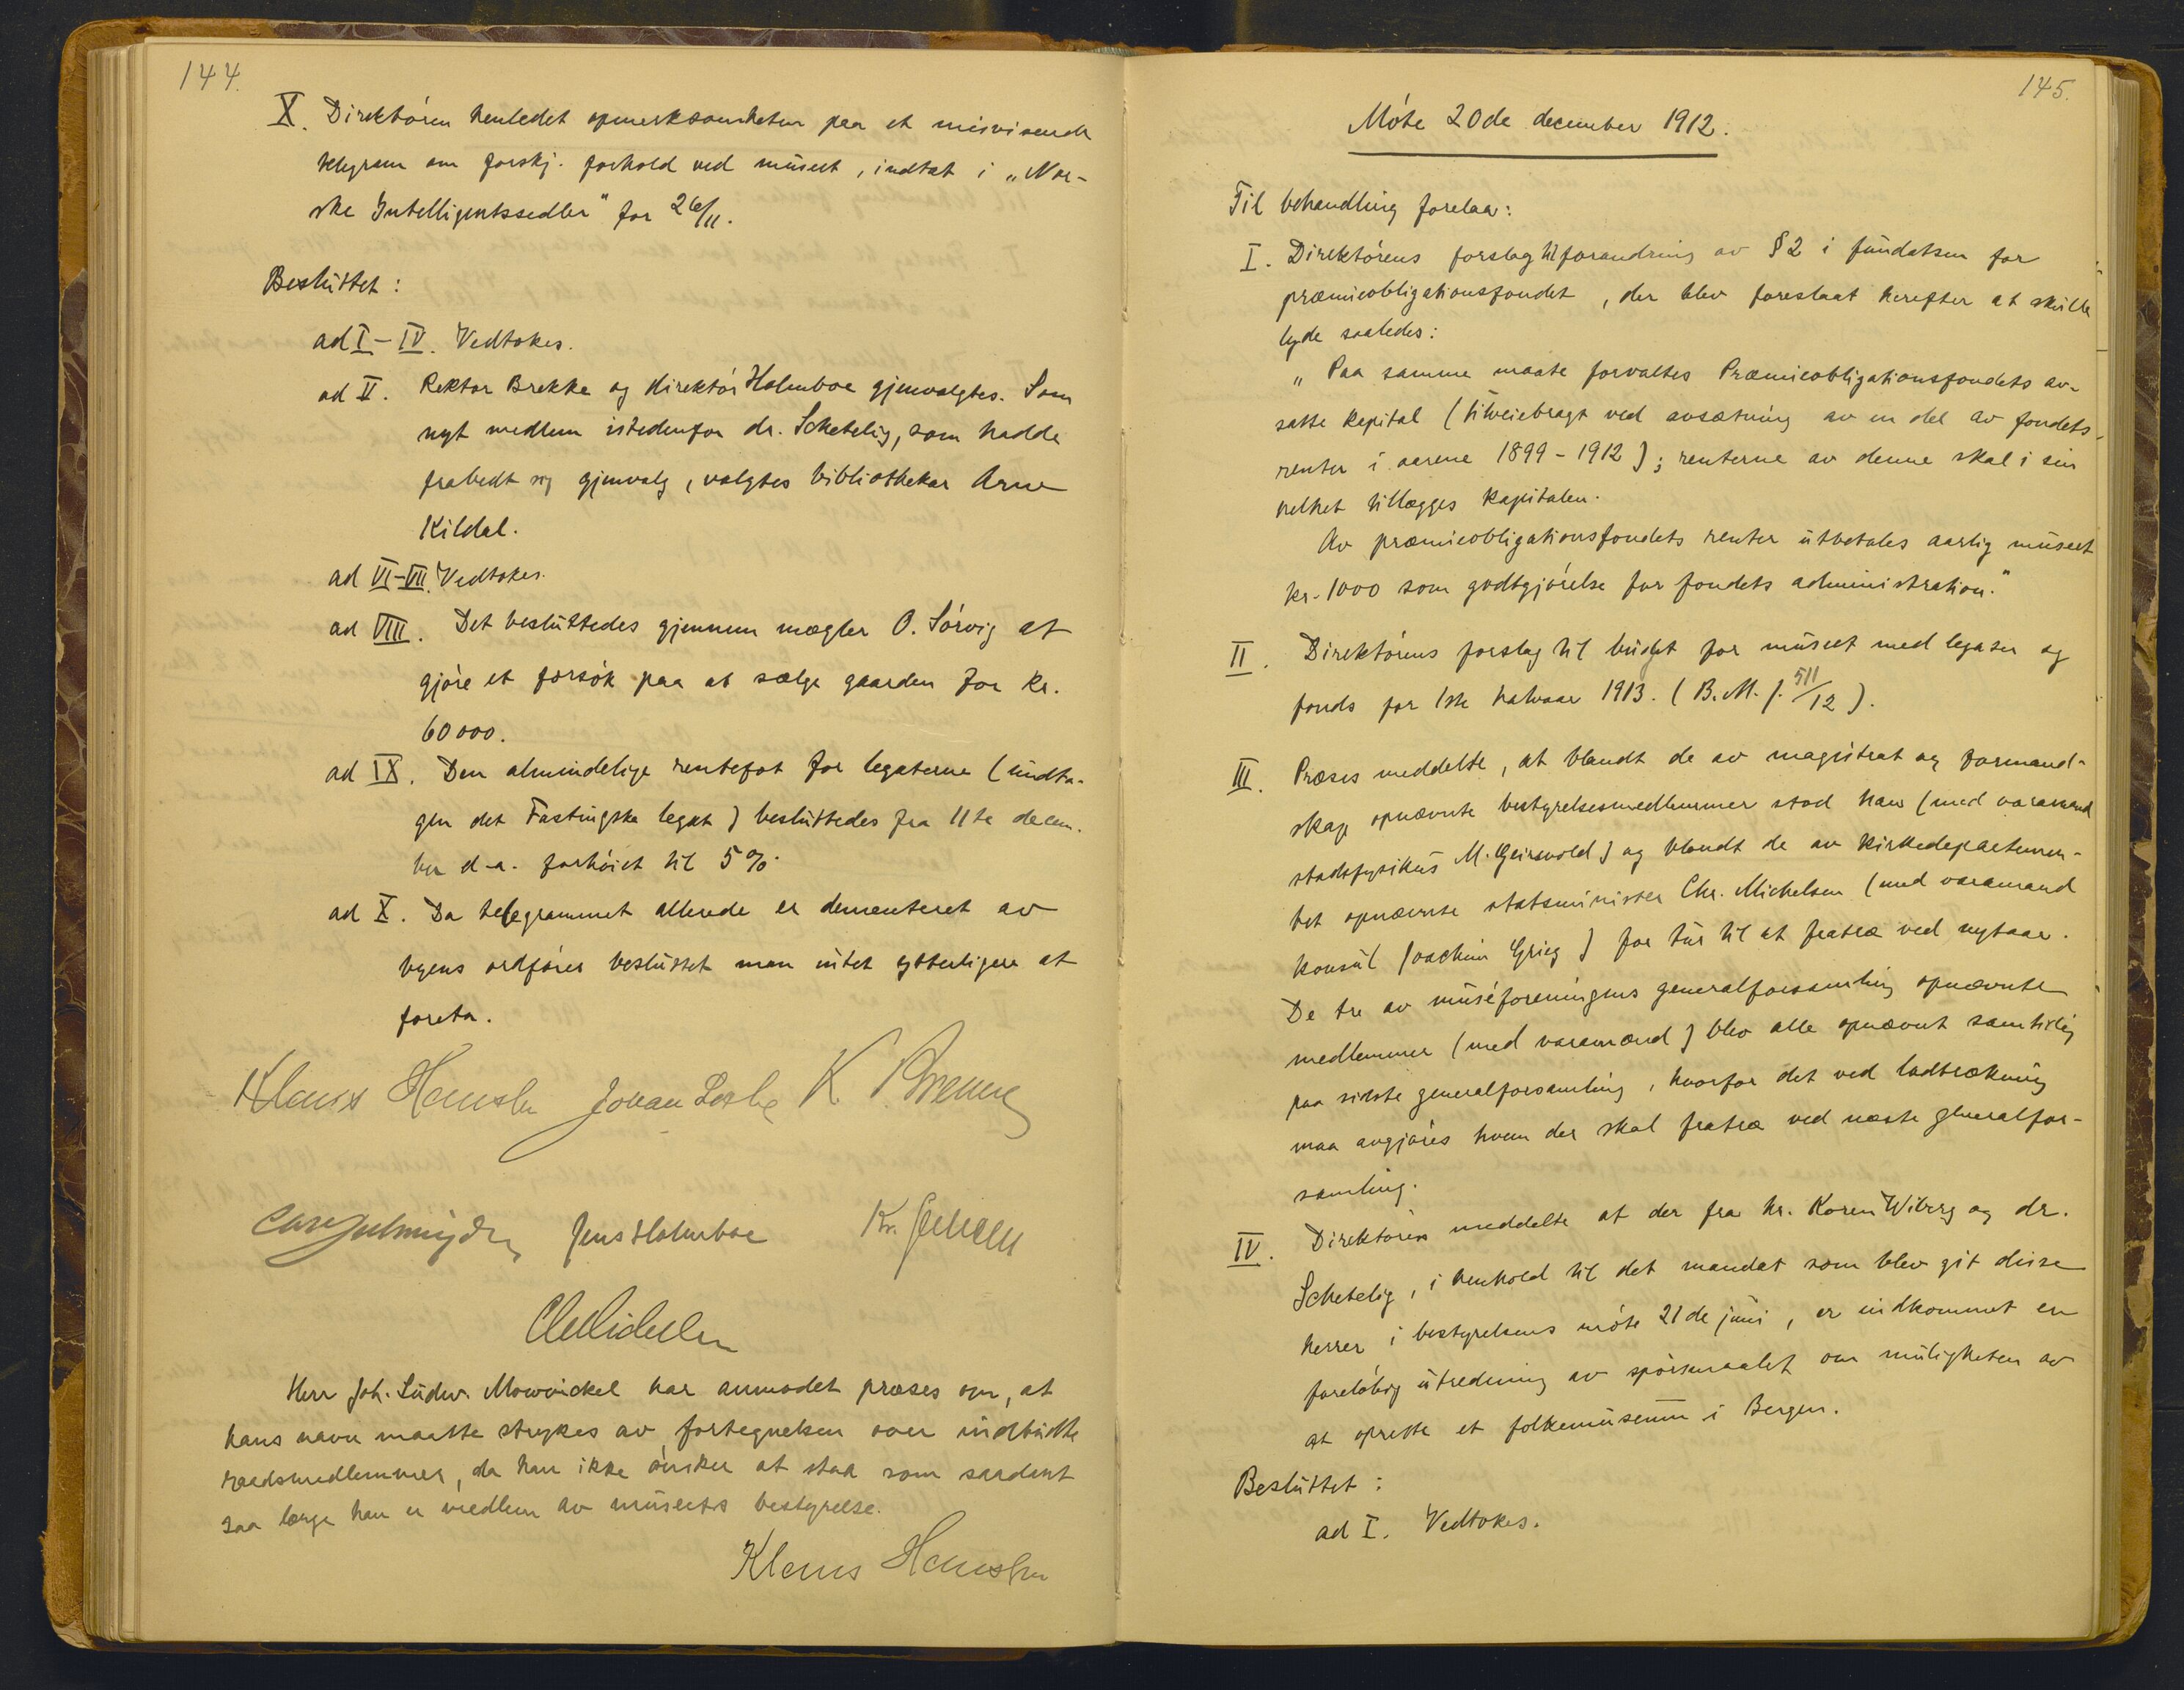 144.
X. Direktóren henledet opmerksomheten paa et misvisende
telegram om forskj. forhold ved museet, indtat i „Nor-
ske Intelligentssedler" for 26/11.
Besluttet:
ad I-IV. Vedtokes.
ad V. Rektor Brekke og direktór Holmboe gjenvalgtes. Som
nyt medlem istedenfor dr. Schetelig, som hadde
frabedt sig gjenvalg, valgtes bibliothekar Arne
Kildal.
ad VI-VII. Vedtokes.
ad VIII. Det besluttedes gjennem mægler O. Sórvig at
gjóre et forsók paa at sælge gaarden for kr.
60000.
ad IX. Den almindelige rentefot for legaterne (undta-
gen det Fastingske legat) besluttedes fra 11te decem-
ber d-a. forhóiet til 5%.
ad X. Da telegrammet allerede er dementeret av
byens ordfórer besluttet man intet ytterligere at
foreta.
Klaus Hanssen Johan Lothe K Brenne
Jens Holmboe Kr. Jensen
Chr Michelsen
Herr Joh. Ludw. Mowinckel har anmodet præses om, at
hans navn maatte strykes av fortegnelsen over indbudte
raadsmedlemmer, da han ikke ónsker at staa som saadant
saa længe han er medlem av museets bestyrelse.
Klaus Hanssen
145.
Móte 20de december 1912.
Til behandling forelaa:
I. Direktórens forslag til forandring av §2 i fundatsen for
præmieobligationsfondet, der blev foreslaat herefter at skulle
lyde saaledes:
„Paa samme maate forvaltes Præmieobligationsfondets av-
satte kapital (tilveiebragt ved avsætning av en del av fondets
renter i aarene 1899-1912); renterne av denne skal i sin
helhet tillægges kapitalen.
Av præmieobligationsfondets renter utbetales aarlig museet
kr. 1000 som godtgjórelse for fondets administration."
II. Direktórens forslag til budget for museet med legater og
fonds for 1ste halvaar 1913. (B.M. j. 511/12).
III. Præses meddelte, at blandt de av magistrat og formand-
skap opnævnte bestyrelsesmedlemmer stod han (med varamand
stadsfysikus M. Geirsvold) og blandt de av kirkedepartemen-
tet opnævnte statsminister Chr. Michelsen (med varamand
konsul Joachim Grieg) for tur til at fratræ ved nytaar.
De tre av muséforeningens generalforsamling opnævnte
medlemmer (med varamænd) blev alle opnævnt samtidig
paa sidste generalforsamling, hvorfor det ved lodtrækning
maa avgjóres hvem der skal fratræ ved næste generalfor-
samling.
IV. Direktóren meddelte at der fra hr. Koren Wiberg og dr.
Schetelig, i henhold til det mandat som blev git disse
herrer i bestyrelsens móte 21de juni, er indkommet en
forelóbig utredning av spórsmaalet om muligheten av
at oprette et folkemuseum i Bergen.
Besluttet:
ad I. Vedtokes.